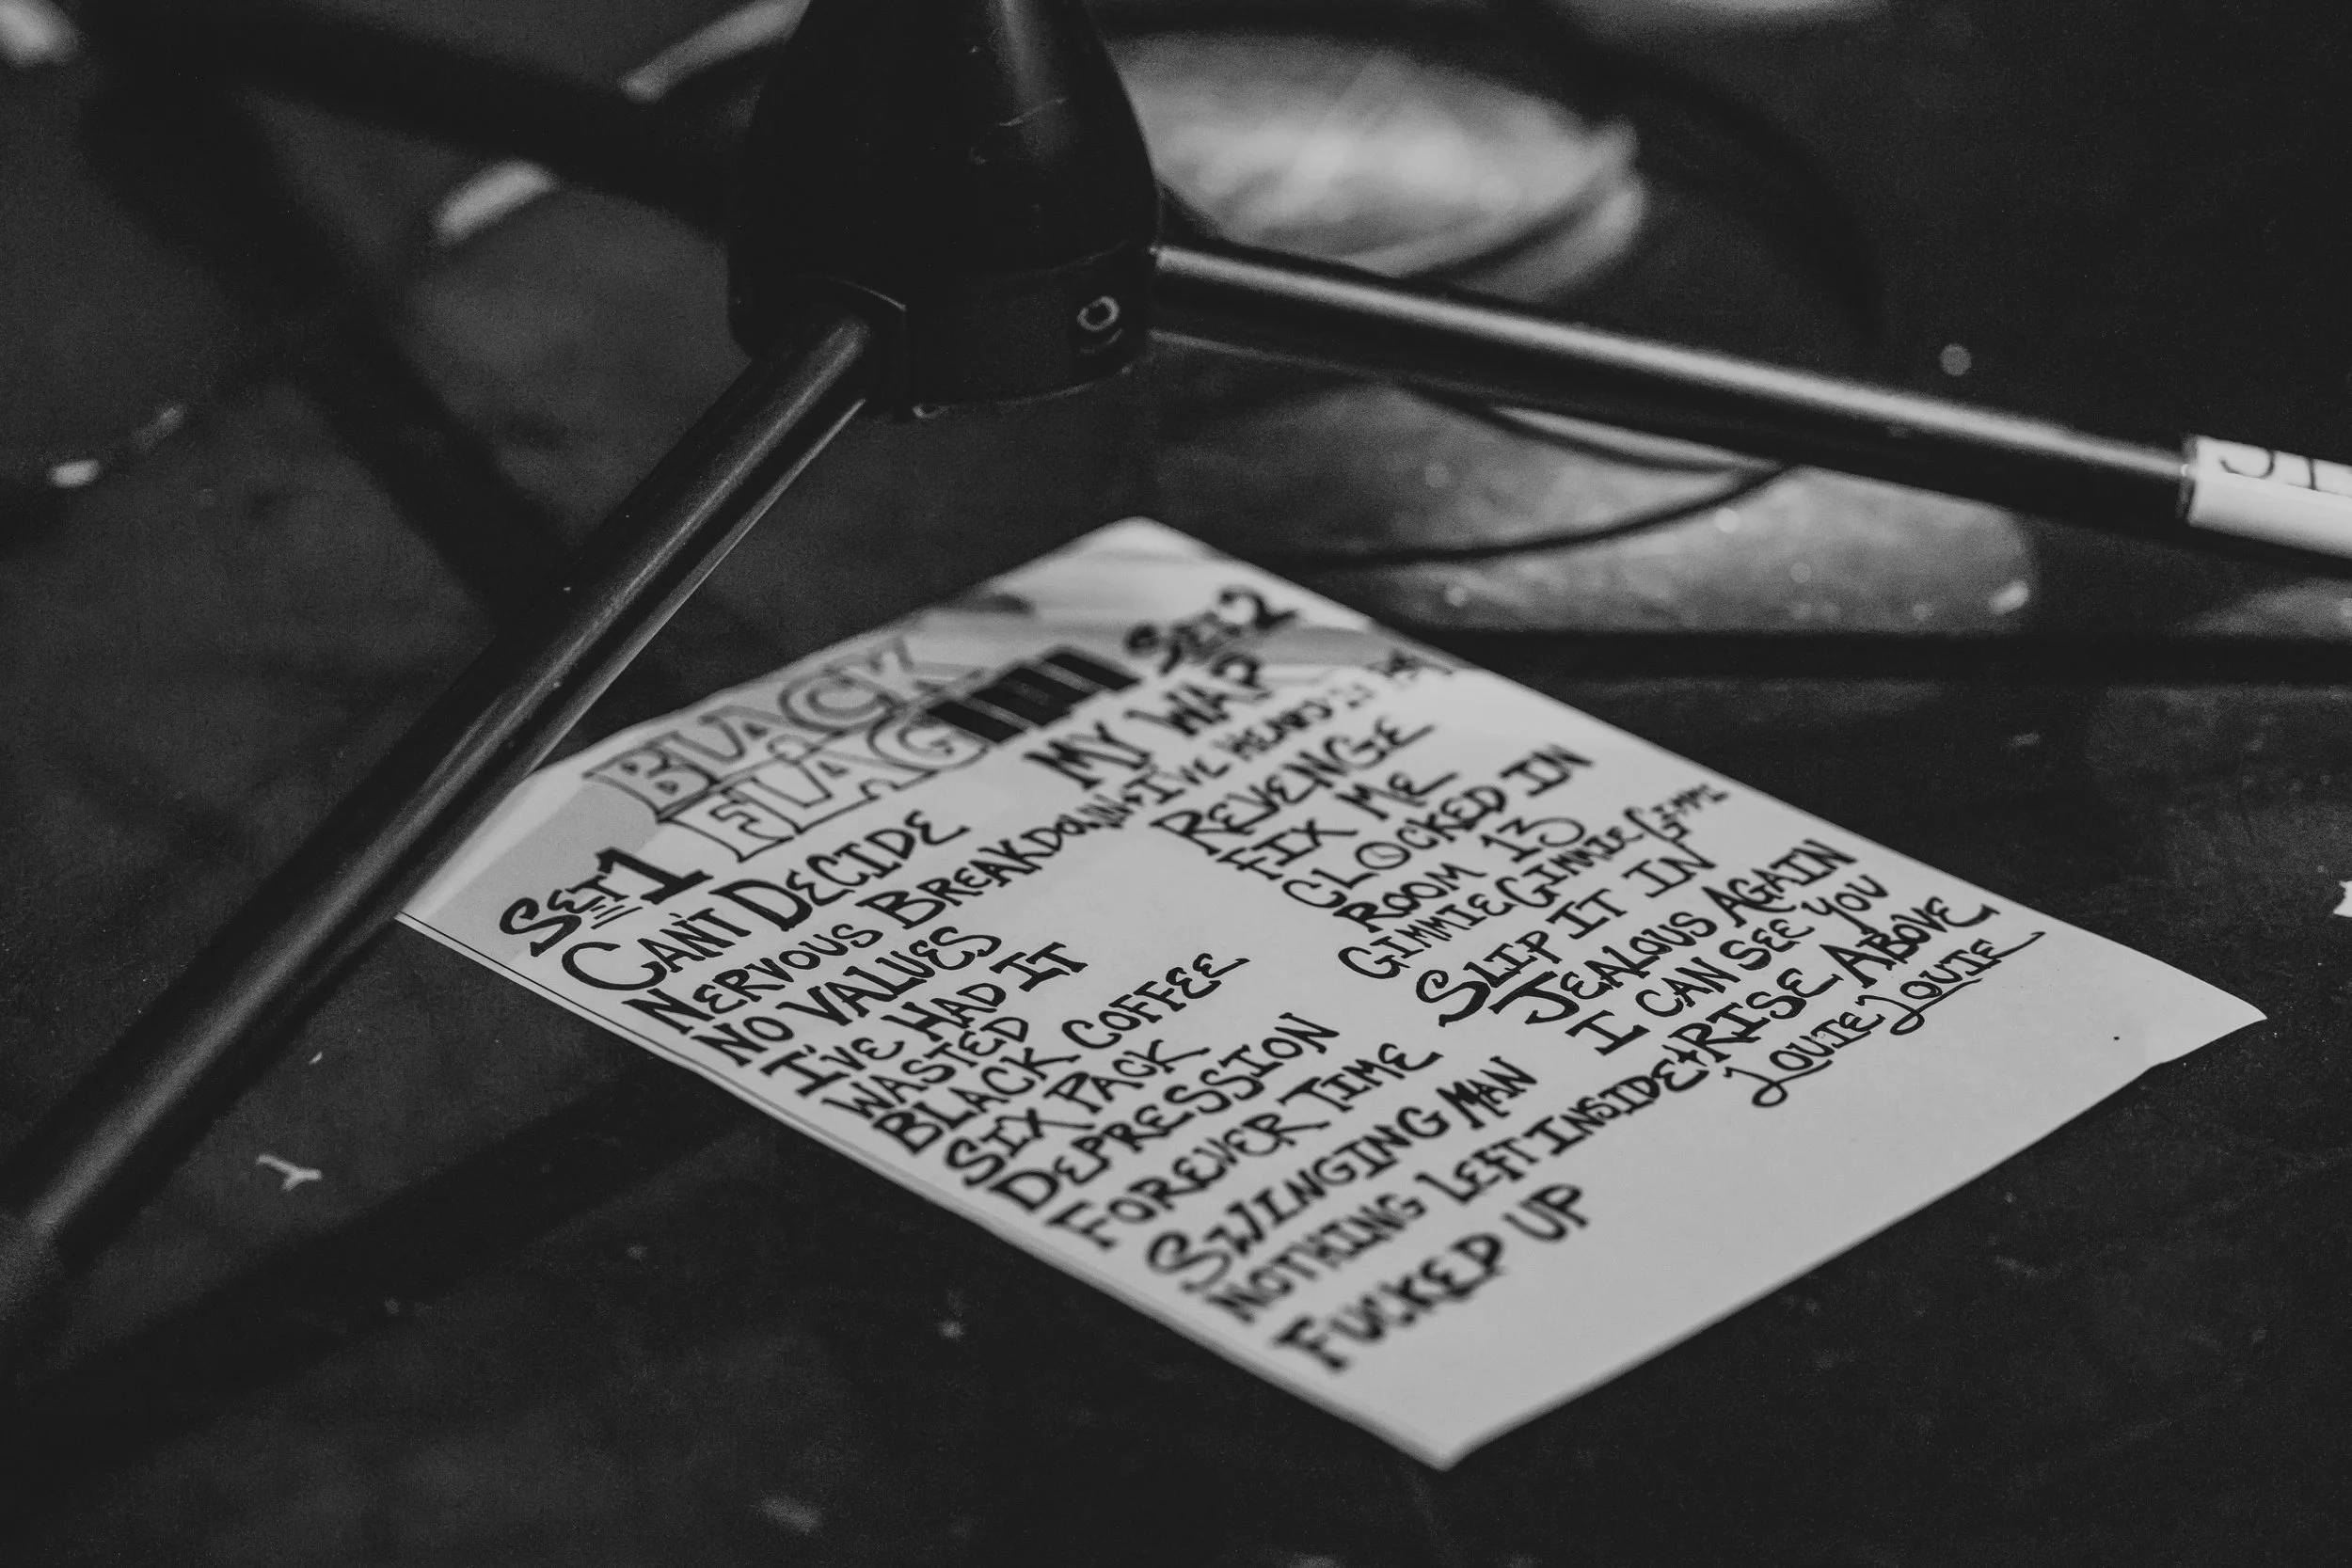 BLACK
FLAG
SET 1
CAN'T DECIDE
NERVOUS BREAKDOWN
NO VALUES
I'VE HAD IT
WASTED
BLACK COFFEE
SIX PACK
DEPRESSION
FOREVER TIME
SWINGING MAN
NOTHING LEFT INSIDE
FUCKED UP
SET 2
MY WAR
I'VE HEARD IT
REVENGE
FIX ME
CLOCKED IN
ROOM 13
GIMMIE GIMMIE GIMMI
SLIP IT IN
JEALOUS AGAIN
I CAN SEE YOU
RISE ABOVE
LOUIE LOUIE